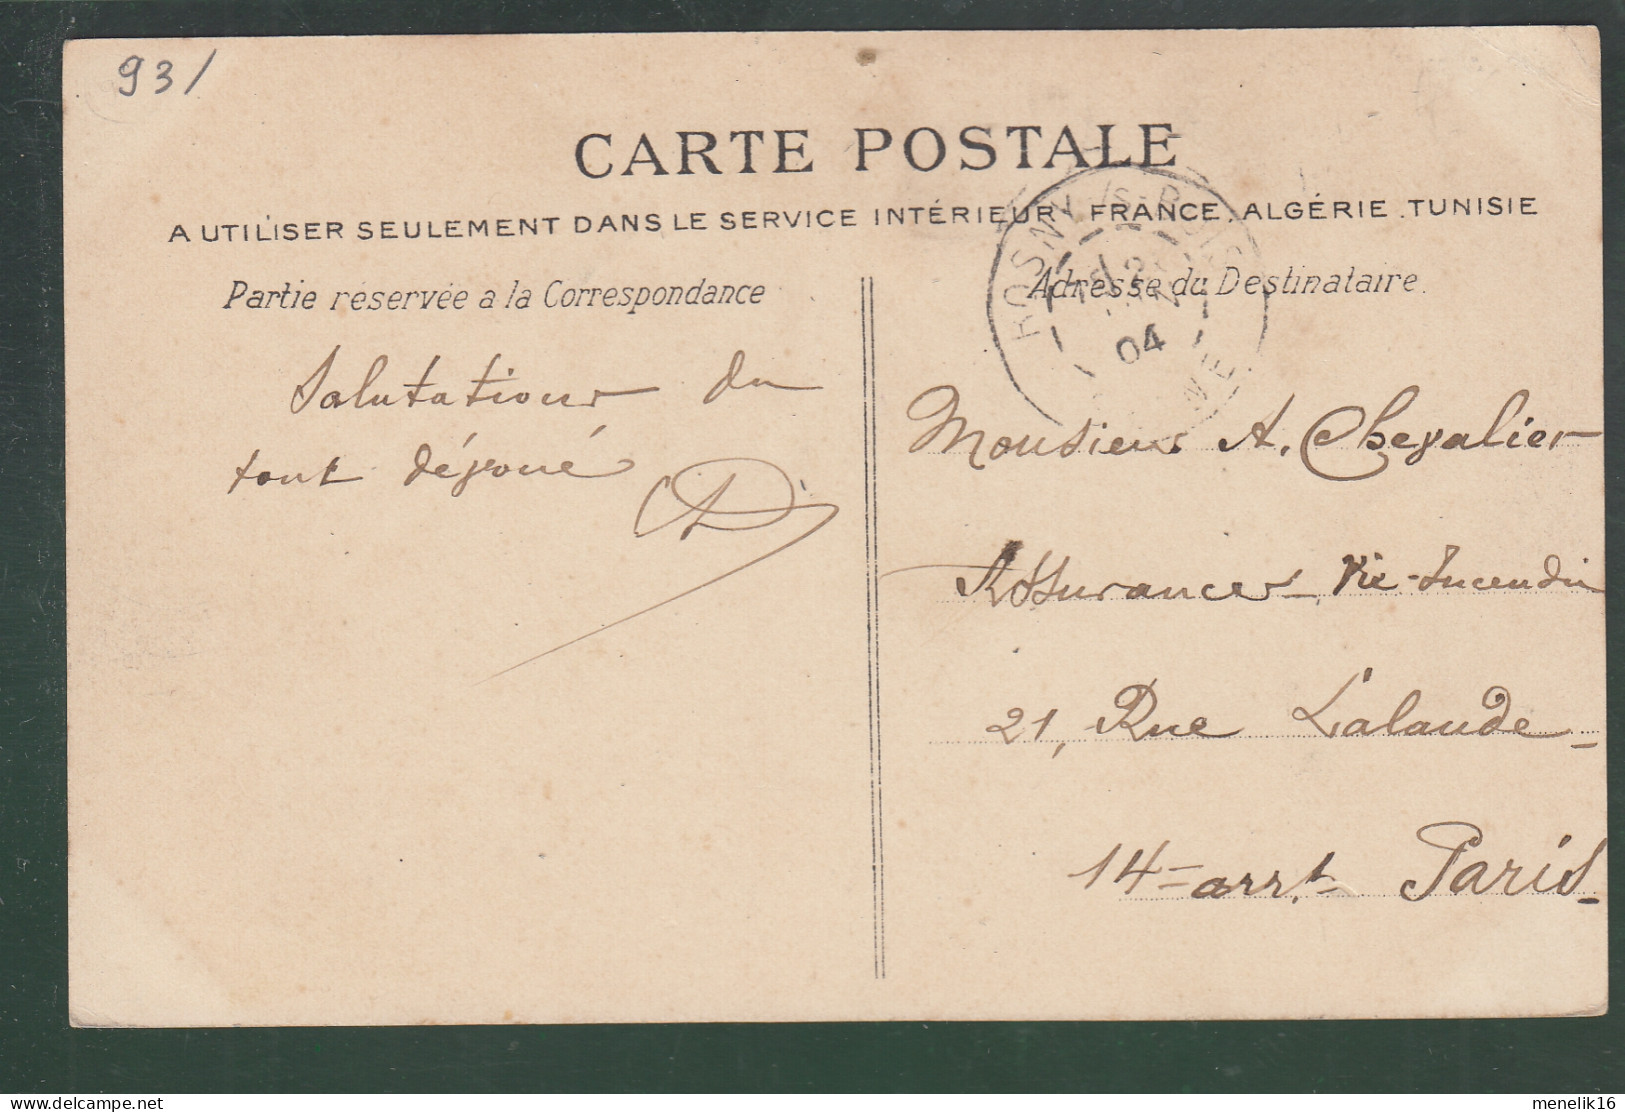 93/
CARTE POSTALE
A UTILISER SEULEMENT DANS LE SERVICE INTÉRIEUR, FRANCE, ALGÉRIE, TUNISIE
Partie réservée a la Correspondance
Adresse du Destinataire.
ROSNY S-BOIS
04
Salutations du
tout dévoué
Monsieur A. Chevalier
Assurances Vie-Incendie
21, Rue Lalande
14= arrt Paris
delcampe.net
menelik16